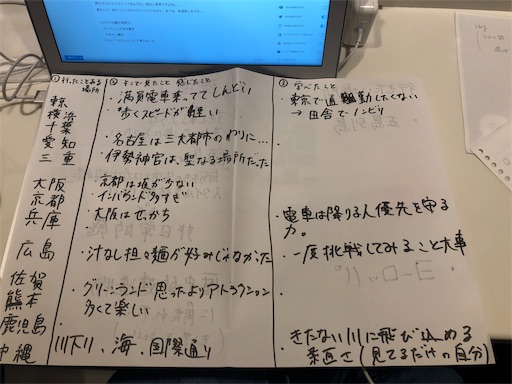 ①行ったことある場所
②そこで見たこと 感じたこと
③学べたこと
東京
横浜
千葉
愛知
三重
・満員電車乗ってて しんどい
・歩くスピードが軽い
・名古屋は三大都市のわりに…
・伊勢神宮は、聖なる場所だった
東京で通勤したくない
→田舎でノンビリ
大阪
京都
兵庫
・京都は坂が少ない
・インバウンド多すぎ
・大阪はせっかち
・電車は降りる人優先を守る
力。
広島
・汁なし担々麺が好みじゃなかった
・一度挑戦してみること大事
佐賀
熊本
鹿児島
・グリーンランド思ったよりアトラクション
多くて楽しい
沖縄
川下川、海、国際通り
・きたない川に飛び込める
素直さ(見てるだけの自分)